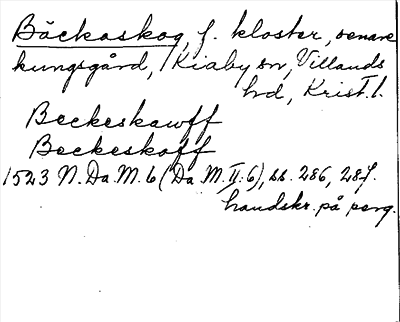 Bäckaskog, f. kloster, senare
kungsgård, Kiaby sn, Villands
hd, Krist. l.
Beckeskawff
Beckeskoff
1523 N. Da. M. 6 (Da. M. II: 6), ss. 286, 287.
handskr. på perg.